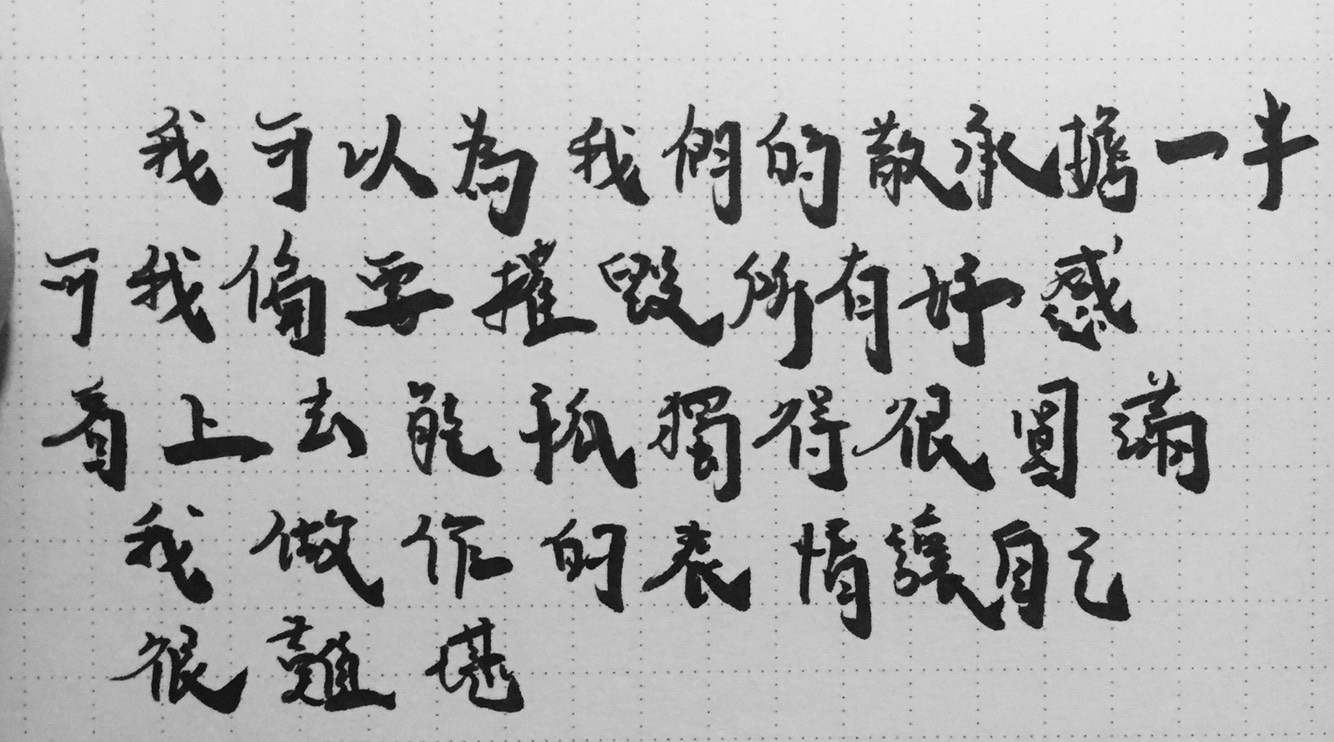 我可以為我們的散承擔一半
可我偏要摧毀所有好感
看上去能孤獨得很圓滿
我做作的表情讓自己
很難堪